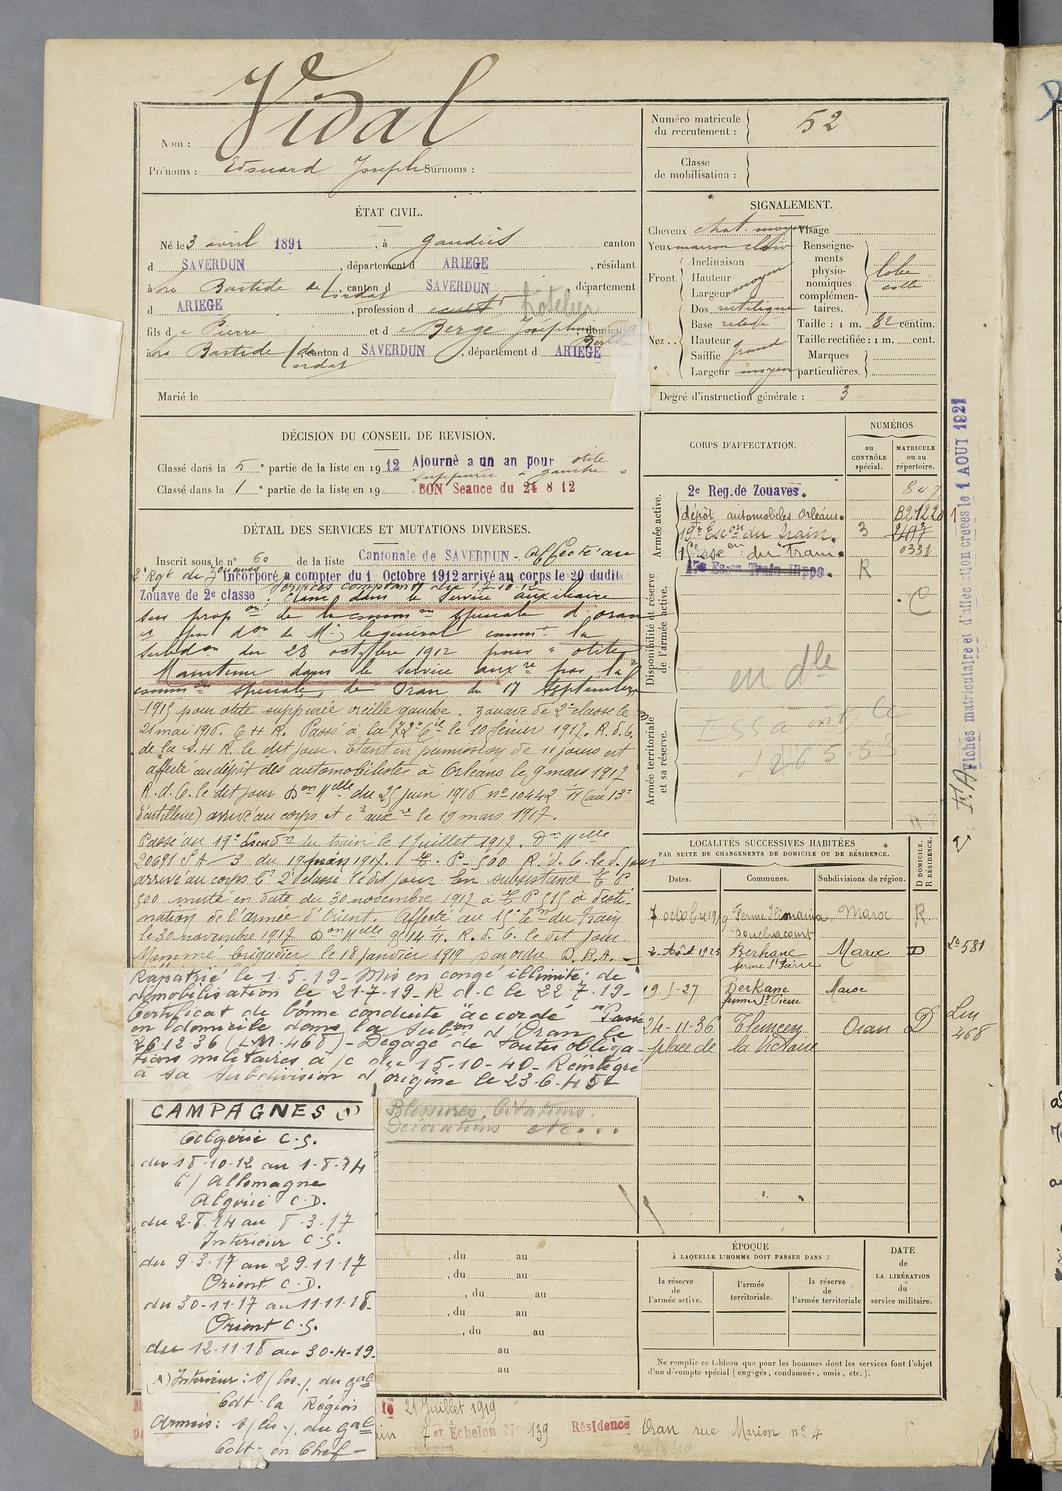 Vidal
Nom :
Prénoms : Edouard Joseph Surnoms :
Numéro matricule
du recrutement : 52
Classe
de mobilisation :
ÉTAT CIVIL.
Né le 3 avril 1891, à Gaudiès canton
d SAVERDUN, département d ARIEGE, résidant
à La Bastide de Lordat, canton d SAVERDUN département
d ARIEGE, profession d hotelier
fils de Pierre et de Berge Joséphine Berthe domiciliés
La Bastide de Lordat canton d SAVERDUN, département d ARIEGE
Marié le
SIGNALEMENT.
Cheveux chat. moyen Visage
Yeux marron clair
Front. Inclinaison
Hauteur moyen
Largeur
Nez.. Dos rectiligne
Base relevée
Hauteur
Saillie grand
Largeur moyen
Renseigne-
ments
physio-
nomiques
complémen-
taires.
lobe
collé
Taille : 1 m. 82 centim.
Taille rectifiée : 1 m. cent.
Marques
particulières.
Degré d'instruction générale : 3
DÉCISION DU CONSEIL DE REVISION.
Classé dans la 5e partie de la liste en 1912 Ajourné a un an pour otite
suppurée à gauche
Classé dans la 1e partie de la liste en 19 BON Seance du 21 8 12
DÉTAIL DES SERVICES ET MUTATIONS DIVERSES.
Inscrit sous le n° 60 de la liste Cantonale de SAVERDUN - Affecté au
2e Rgt de Zouaves Incorporé a compter du 1 Octobre 1912 arrivé au corps le 20 dudit
Services comptant du 17-10-12
Zouave de 2e classe. Classé dans le Service auxiliaire
sur propon de la commson spéciale d'Oran
et par don de Mr le général commt la
subdon du 28 octobre 1912 pour "otite"
Maintenu dans le service auxre par la
commson spéciale de Oran du 17 Septembre
1915 pour otite suppurée oreille gauche. Zouave de 2e classe le
21 mai 1916. C H R. Passé à la 72e Cie le 10 février 1917. R. d. C.
de la S. H R. le dit jour. Etant en permission de 11 jours est
affecté au dépôt des automobilistes à Orléans le 9 mars 1917
R. d. C. le dit jour Don Mlle du 25 juin 1916 n° 10442 (au 13e
d'artillerie) arrivé au corps et c2 auxre le 19 mars 1917.
Passé au 19e Escadon du train le 1 juillet 1917. Don Mlle
20691 S A-3 du 19 1917. R. d. C. le d. jour
arrivé au corps C2 2e classe le dit jour. En subsistance T P
500 muté en date du 30 novembre 1917 à T P 515 à desti-
nation de l'armée d'Orient. Affecté au 15e Eon du Train
le 30 novembre 1917 Don Mlle 9514. R. d. C. le dit jour
Nommé brigadier le 18 janvier 1919 par ordre D.B.A.
Rapatrié le 1-5-19 - Mis en congé illimité de
démobilisation le 21-7-19 - R d. C le 22-7-19
Certificat de bonne conduite "accordé" Passé
en domicile dans la Subon d'Oran le
26 12 36 (LM. 468) - Dégagé de toutes obliga-
tions militaires à /c du 15-10-40 - Réintégré
à sa subdivision d'origine le 23-6-45
CORPS D'AFFECTATION.
NUMÉROS
au
CONTRÔLE
spécial.
MATRICULE
ou au
répertoire.
Armée active.
2e Reg. de Zouaves. 847
dépôt automobiles Orléans. B21220
19e Escon du Train. 3 2407
15e Escon du Train. 0331
15e Escon Train Hippo. R
Disponibilité et réserve
de l'armée active.
C
en dle
Armée territoriale
et sa réserve.
Essaimé le
Fiches matriculaire et d'affectation créées le 1 AOUT 1921
LOCALITÉS SUCCESSIVES HABITÉES
PAR SUITE DE CHANGEMENTS DE DOMICILE OU DE RÉSIDENCE.
Dates. Communes. Subdivisions de région. D DOMICILE. R RÉSIDENCE.
7 octobre 1919 Ferme Maroc R.
2 Août 1923 Berkane Maroc D
ferme St Pierre
19-5-27 Berkane Maroc
ferme St Pierre
24-11-36 Tlemcen Oran D
place de la Victoire
Ls 581
Lm
468
CAMPAGNES (1)
Algérie C.S.
du 18-10-12 au 1-8-14
C/ Allemagne
Algérie C.D.
du 2-8-14 au 8-3-17
Intérieur C.S.
du 9-3-17 au 29-11-17
Orient C.D.
du 30-11-17 au 11-11-18-
Orient C.S.
du 12-11-18 au 30-4-19-
(1) Intérieur: s/les/. du gal
Cdt la Région
Armées: s/les/. du Gal
Cdt en Chef -
Blessures, Citations,
Décorations etc...
, du au
, du au
, du au
, du au
, du au
au
au
ÉPOQUE
À LAQUELLE L'HOMME DOIT PASSER DANS :
la réserve
de
l'armée active.
l'armée
territoriale.
la réserve
de
l'armée territoriale
DATE
de
LA LIBÉRATION
du
service militaire.
Ne remplir ce tableau que pour les hommes dont les services font l'objet
d'un décompte spécial (engagés, condamnés, omis, etc.).
le 21 Juillet 1919
7 er Echelon N° 139 Résidence Oran rue Marion n° 4